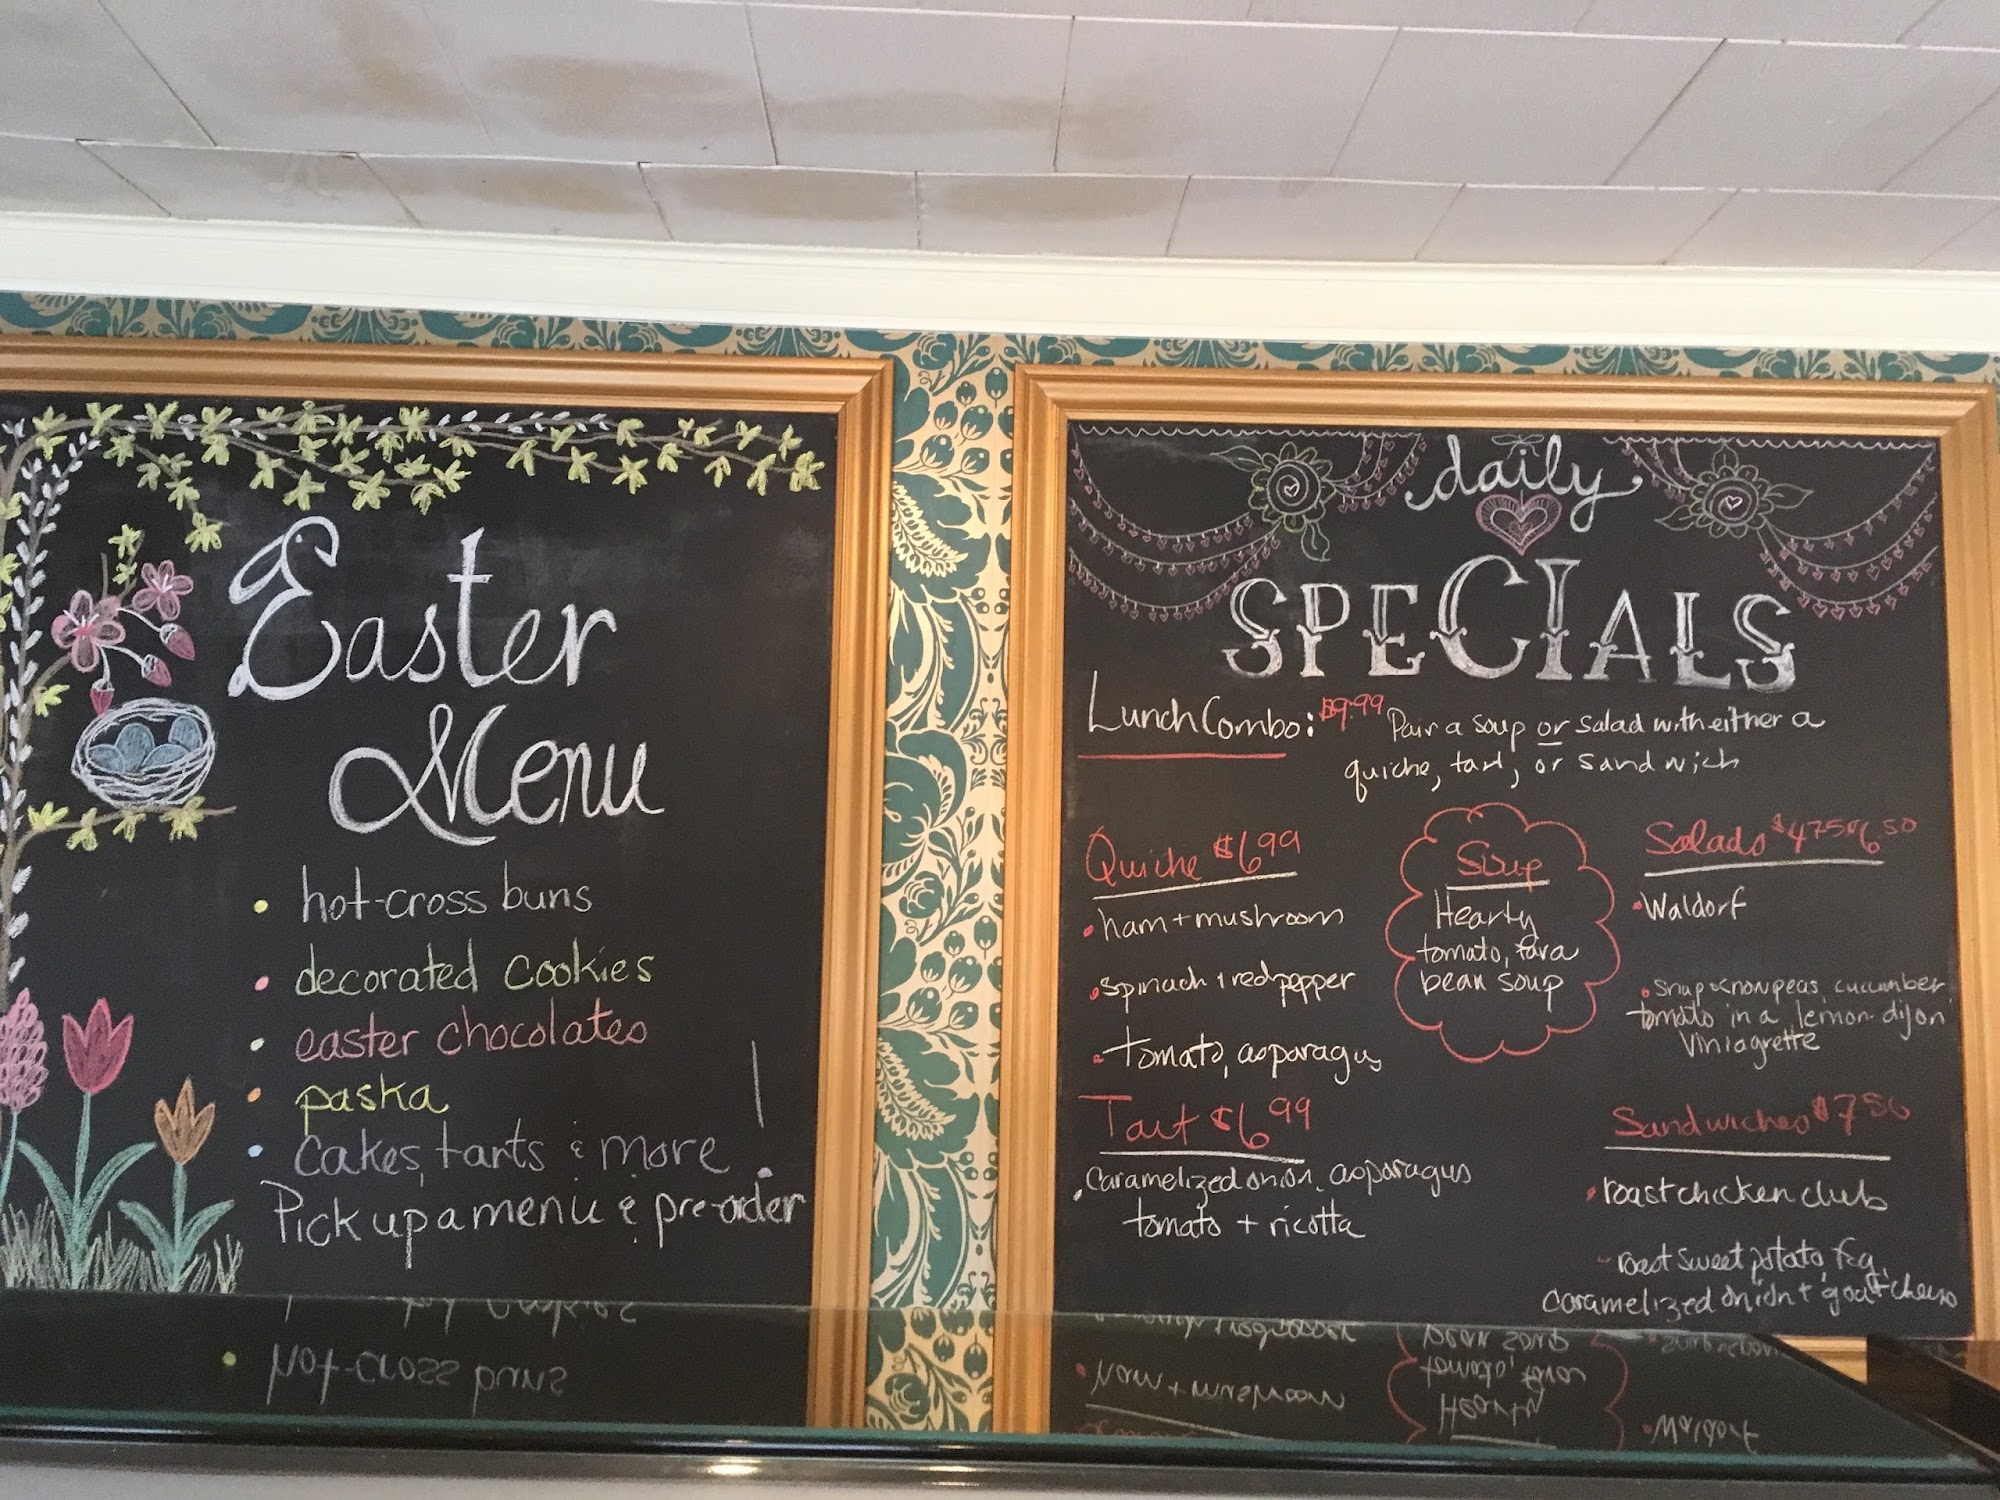 Easter
Menu
hot-cross buns
decorated cookies
easter chocolates
paska
cakes, tarts & more
Pick up a menu & pre-order!
daily
SPECIALS
Lunch Combo: $9.99 Pair a soup or salad with either a
quiche, tart, or sandwich
Quiche $6.99
ham + mushroom
spinach + red pepper
tomato, asparagus
Tart $6.99
Caramelized onion, asparagus
tomato + ricotta
Soup
Hearty
tomato, fava
bean soup
Salads $4.75 6.50
Waldorf
snap + snow peas, cucumber
tomato in a lemon-dijon
Viniagrette
Sandwiches $7.50
roast chicken club
roast sweet potato, fig,
caramelized onion + goat cheese